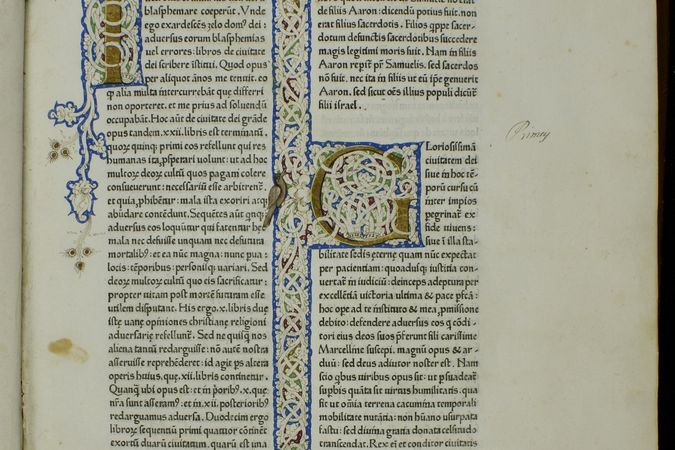 blasphemare coeperūt. Vnde
ego exardescēs zelo domꝰ dei :
adversus eorum blasphemias
vel errores: libros de civitate
dei scribere istitui. Quod opus
per aliquot ānos me tenuit. eo
ꝙ alia multa intercurrebāt que differri
non oporteret. et me prius ad solvendū
occupabāt. Hoc aūt de civitate dei grāde
opus tandem .xxii. libris est terminatū.
quoꝝ quinqꝫ primi eos refellunt qui res
humanas ita ꝓsperari volunt: ut ad hoc
multoꝝ deoꝝ cultū quos pagani colere
consueverunt: necessariū esse arbitrent.
et quia ꝓhibent: mala ista exoriri atqꝫ
abūdare contēdunt. Sequētes aūt qnqꝫ
adversus eos loquūtur qui fatentur hec
mala nec defuisse unquam nec defutura
mortalibꝰ: et ea nūc magna: nunc parua
locis: tēporibus: personisqꝫ variari. Sed
deoꝝ multoꝝ cultū quo eis sacrificatur:
propter vitam post mortē futuram esse
utilem disputant. His ergo .x. libris due
iste vane opiniones christiane religioni
adversarie refellunt. Sed ne quisqꝫ nos
aliena tantū redarguisse: nō autē nostra
asseruisse reprehēderet: id agit pars altera
operis huius, que .xii. libris continetur.
Quanqꝫ ubi opus est: et in pōribꝰ .x. que
nrā sunt asseramꝰ. et in .xii. posterioribꝰ
redarguamus adversa. Duodecim ergo
libroꝝ sequentium primi quattor cōtinēt
exortū duarū civitatum. quarū est una
dei filiis Aaron: dicendū potius fuit. non
erat filius sacerdotis. Filios qppe sacer-
dotum defunctis sacerdotibus succedere
magis legitimi moris fuit. Nam in filiis
Aaron repit pr Samuelis. sed sacerdos
nō fuit. nec ita in filiis ut eū ipe genuerit
Aaron. sed sicut oēs illius populi dicūt
filii israel.
GLoriosissimā
civitatem dei
sive in hoc tē-
porū cursu cū
inter impios
peregrinat ex
fide vivens:
sive ī illa sta-
bilitate sedis eterne quam nūc expectat
per patientiam: quoadusqꝫ iusticia con-
vertat in iudiciū: deinceps adeptura per
excellētiā victoria ultima & pace ꝑfcā:
hoc ope ad te instituto & mea ꝓmissione
debito: defendere adversus eos q cōdi-
tori eius deos suos ꝑferunt fili carissime
Marcelline suscepi. magnū opus & ar-
duū: sed deus adiutor noster est. Nam
scio qbus viribus opus sit: ut ꝑsuadeat
supbis quāta sit virtus humilitatis. qua
fit ut omia terrena cacumina temporali
mobilitate nutātia: non hūano usurpata
fastu: sed divina gratia donata celsitudo
transcendat. Rex eī et conditor civitatis